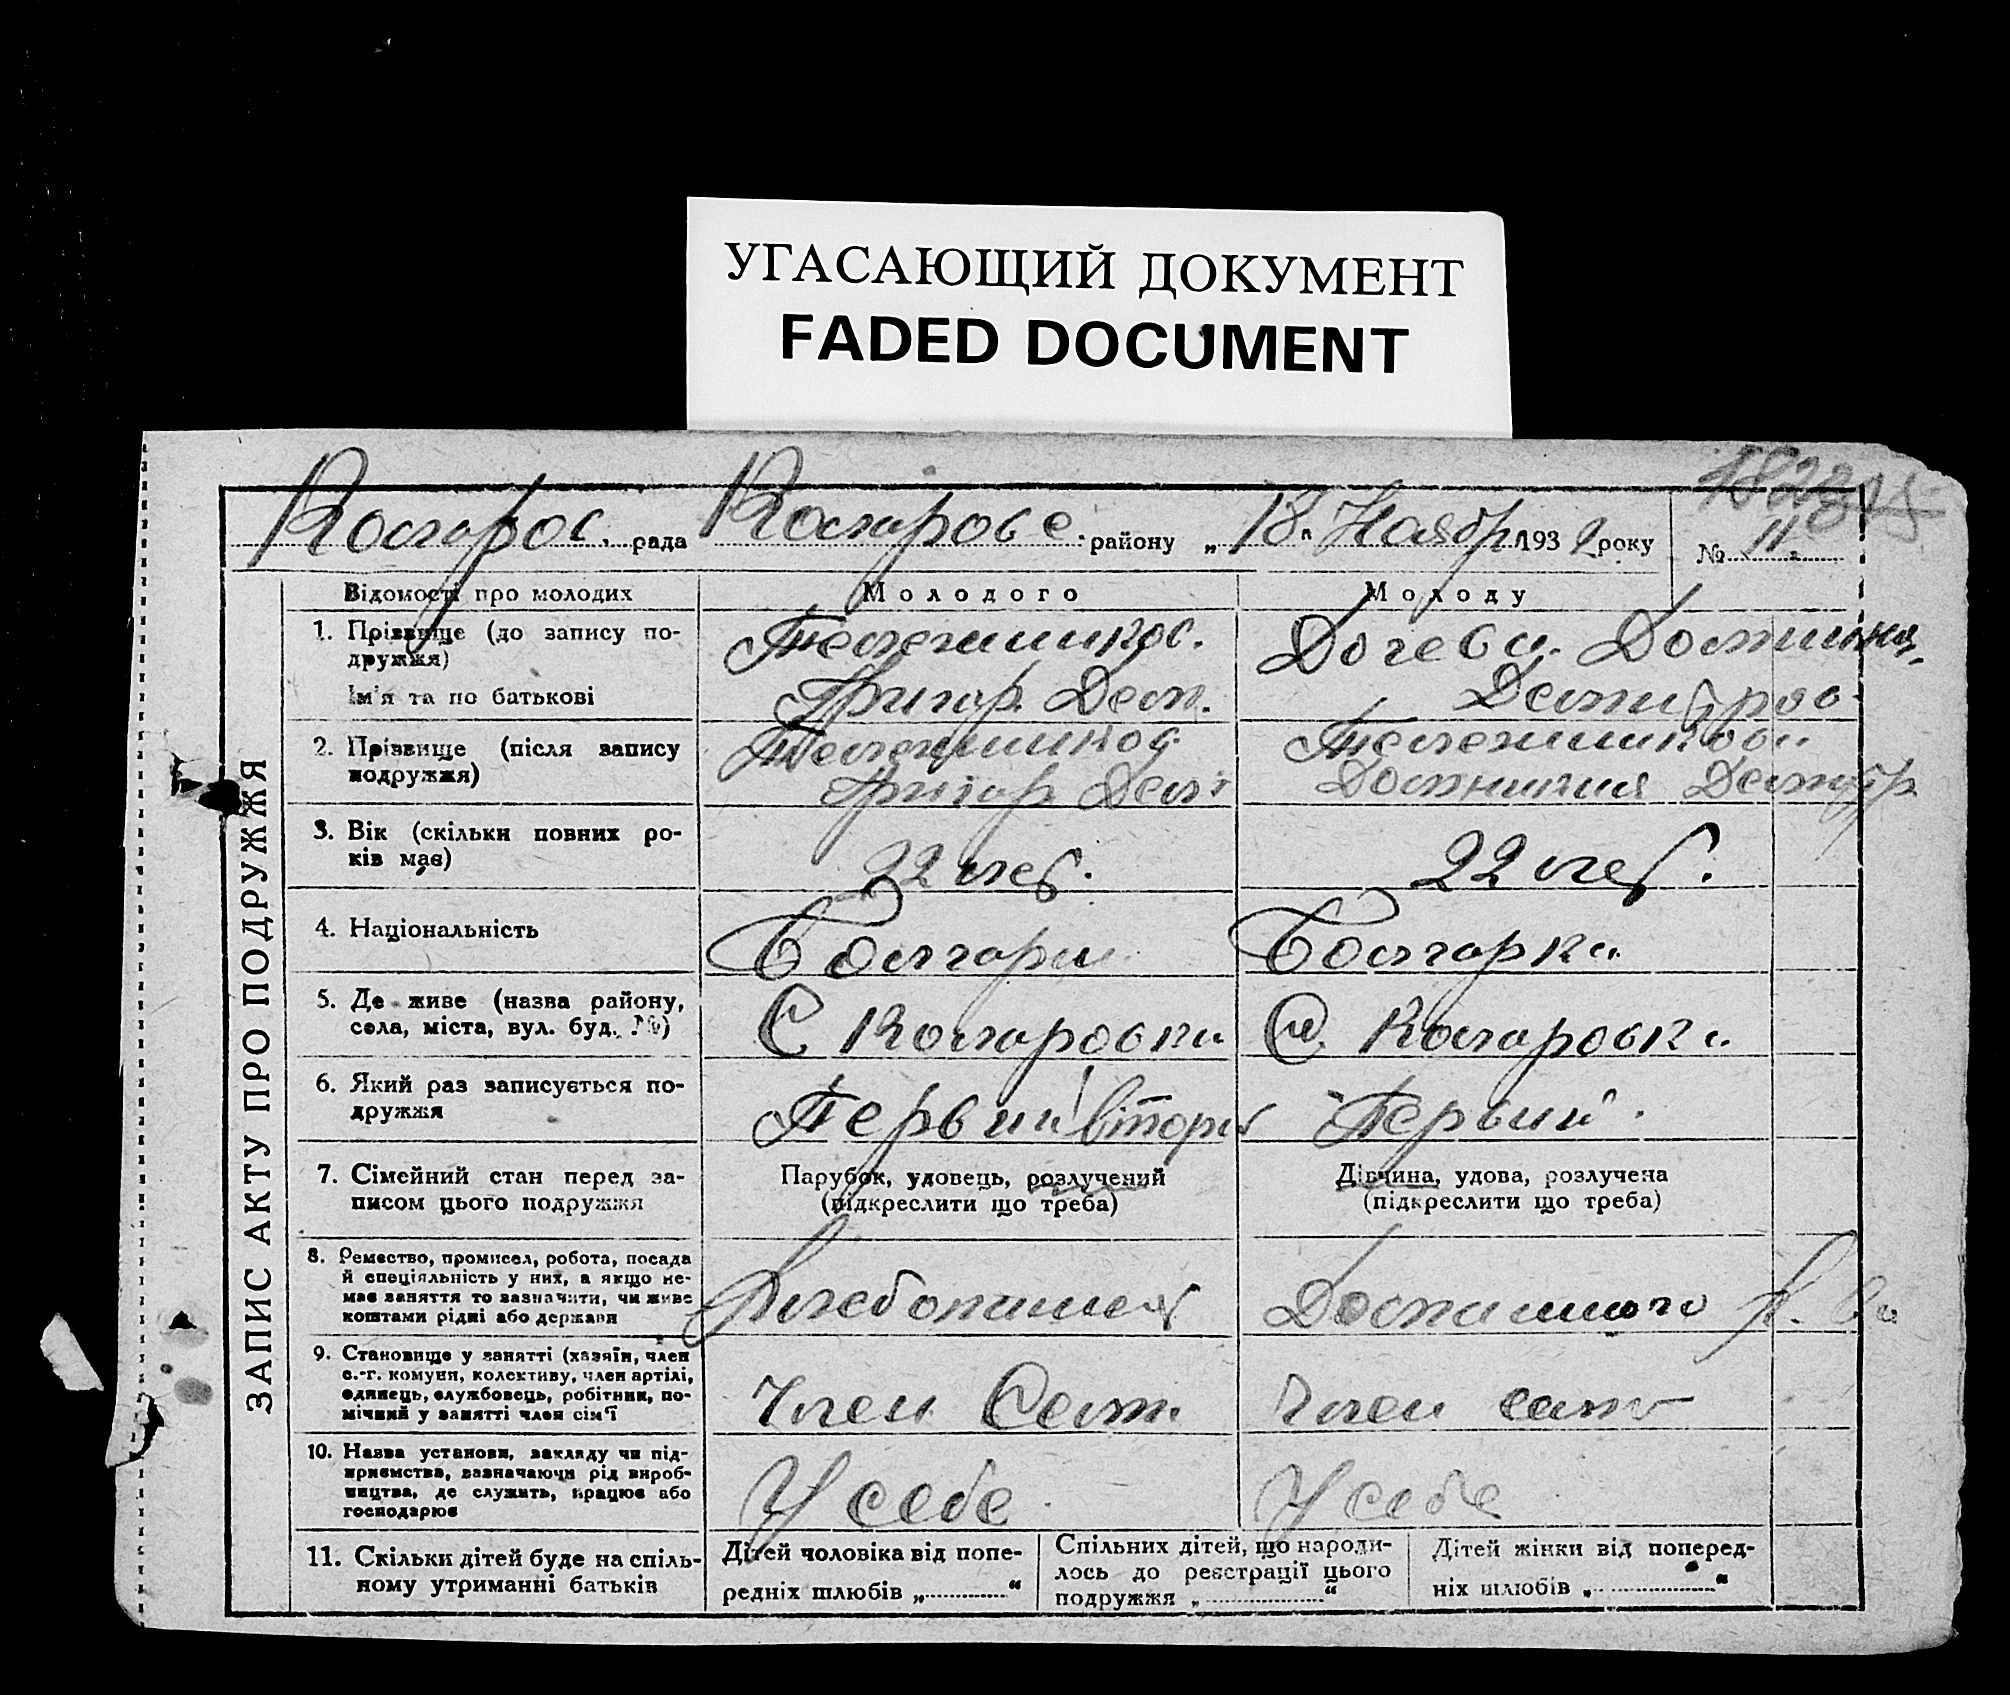 УГАСАЮЩИЙ ДОКУМЕНТ
FADED DOCUMENT
Коларов. рада Коларовс. району „18" Ноябр 1932 року № 11.
ЗАПИС АКТУ ПРО ПОДРУЖЖЯ
Відомості про молодих Молодого Молоду
1. Прізвище (до запису по-
дружжя)
Ім'я та по батькові
Григор. Дем.
2. Прізвище (після запису
подружжя)
Григор Дем
3. Вік (скільки повних ро-
ків має)
22 лет. 22 лет.
4. Національність
Болгарин Болгарка
5. Де живе (назва району,
села, міста, вул. буд. №)
С Коларовка С. Коларовка
6. Який раз записується по-
дружжя
Первий вторий Первий
7. Сімейний стан перед за-
писом цього подружжя
Парубок, удовець, розлучений
(підкреслити що треба)
Дівчина, удова, розлучена
(підкреслити що треба)
8. Ремество, промисел, робота, посада
й спеціяльність у них, а якщо не-
має заняття то зазначити, чи живе
коштами рідні або держави
Хлебопашец
9. Становище у занятті (хазяїн, член
с.-г. комуни, колективу, член артілі,
одинець, службовець, робітник, по-
мічний у занятті член сім'ї
Член Сем. Член сем
10. Назва установи, закладу чи під-
приємства, зазначаючи рід вироб-
ництва, де служить, працює або
господарює
У себе У себе
11. Скільки дітей буде на спіль-
ному утриманні батьків
Дітей чоловіка від попе-
редніх шлюбів „ “
Спільних дітей, що народи-
лось до реєстрації цього
подружжя „ “
Дітей жінки від поперед-
ніх шлюбів „ “